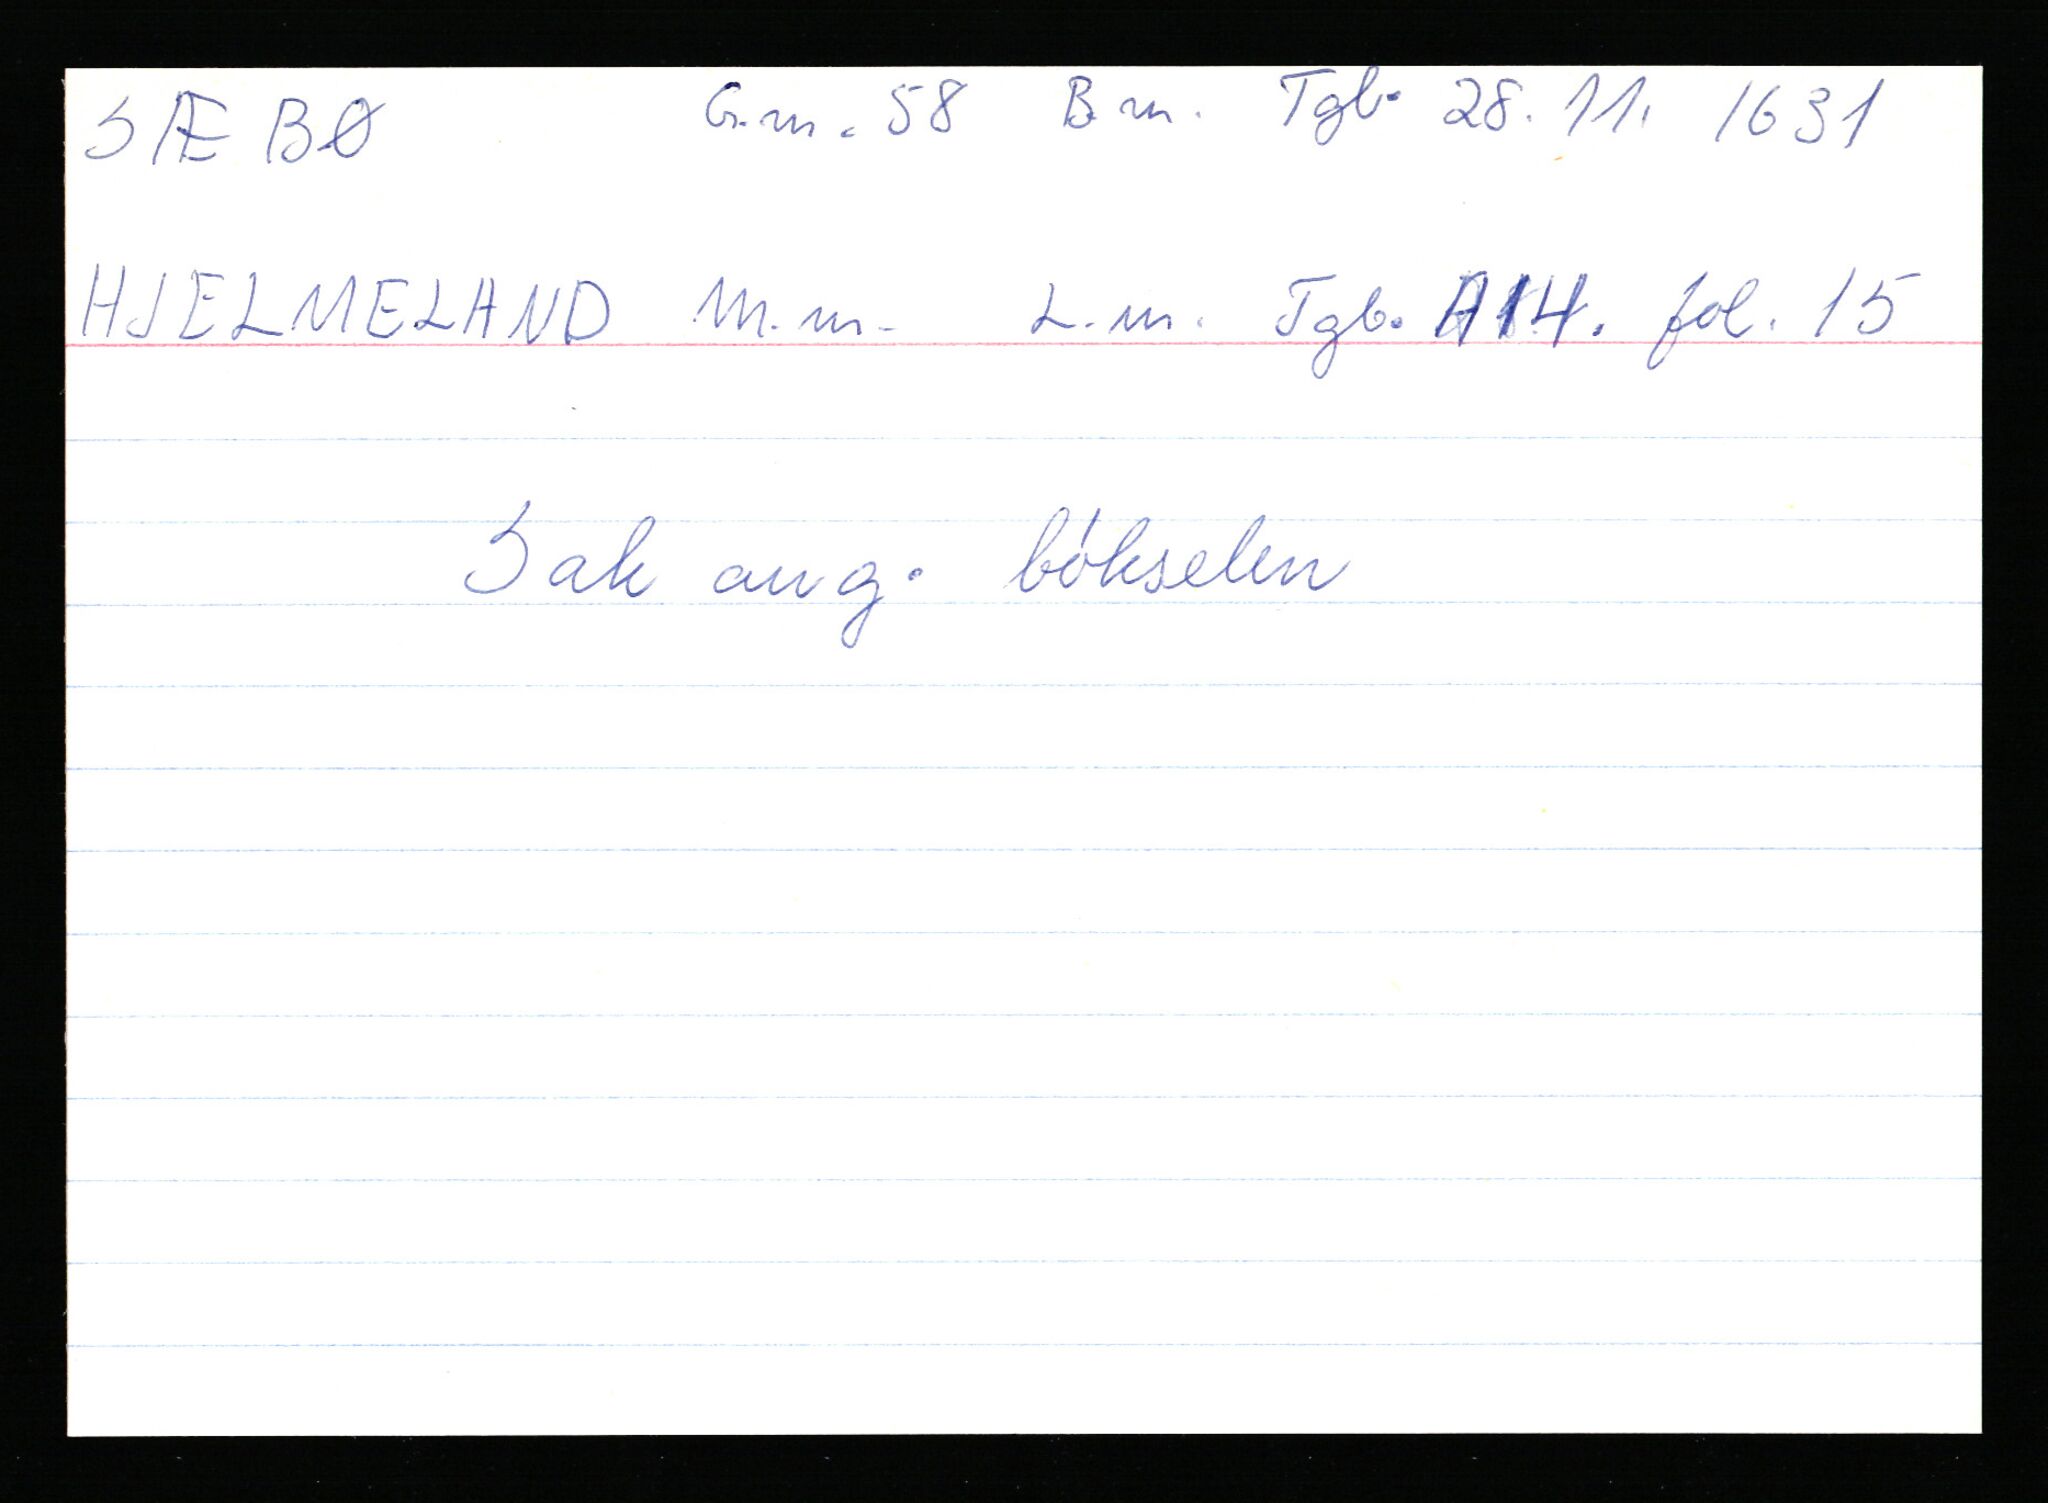 SÆBØ G.m. 58 B.m. Tgb. 28.11. 1631
HJELMELAND M.m. L.m. Tgb. A14. fol. 15
Sak ang. bókselen